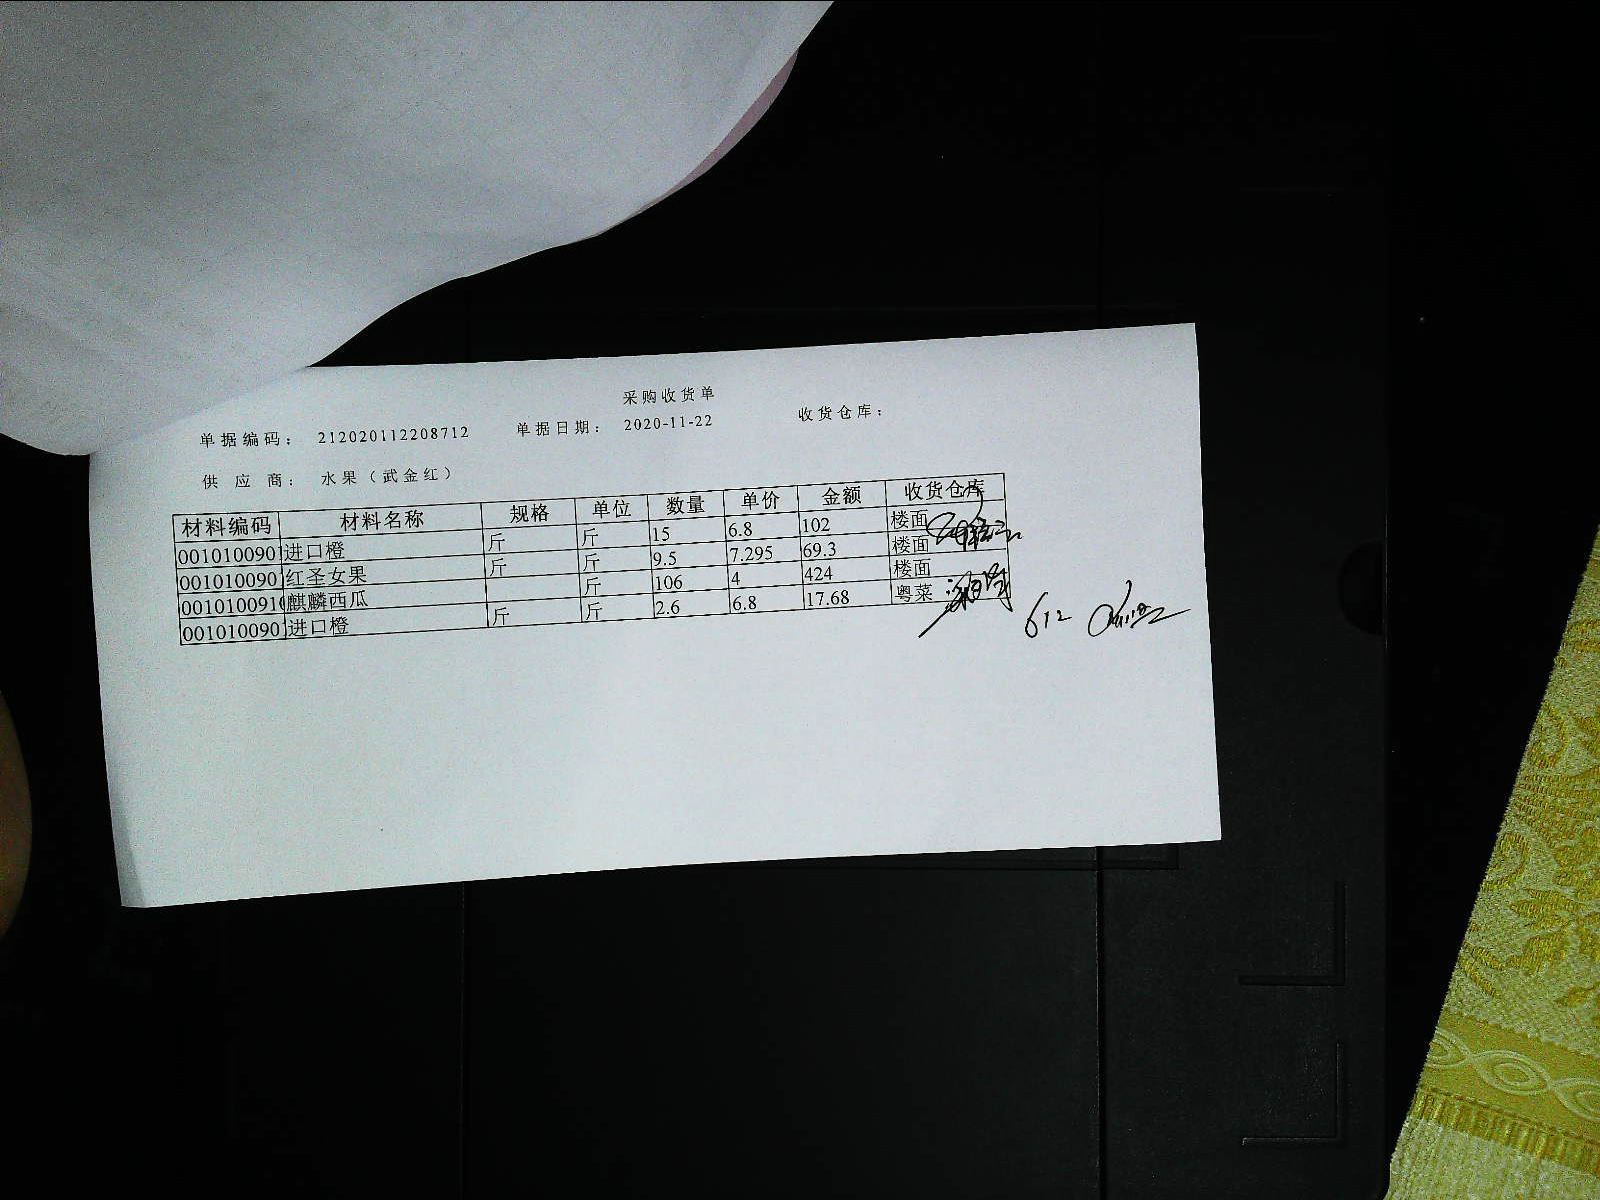 采购收货单
单据编码： 212020112208712 单据日期： 2020-11-22 收货仓库：
供应商： 水果（武金红）
材料编码 材料名称 规格 单位 数量 单价 金额 收货仓库
001010090 进口橙 斤 斤 15 6.8 102 楼面
001010090 红圣女果 斤 斤 9.5 7.295 69.3 楼面
0010100910 麒麟西瓜 斤 106 4 424 楼面
001010090 进口橙 斤 斤 2.6 6.8 17.68 粤菜
612